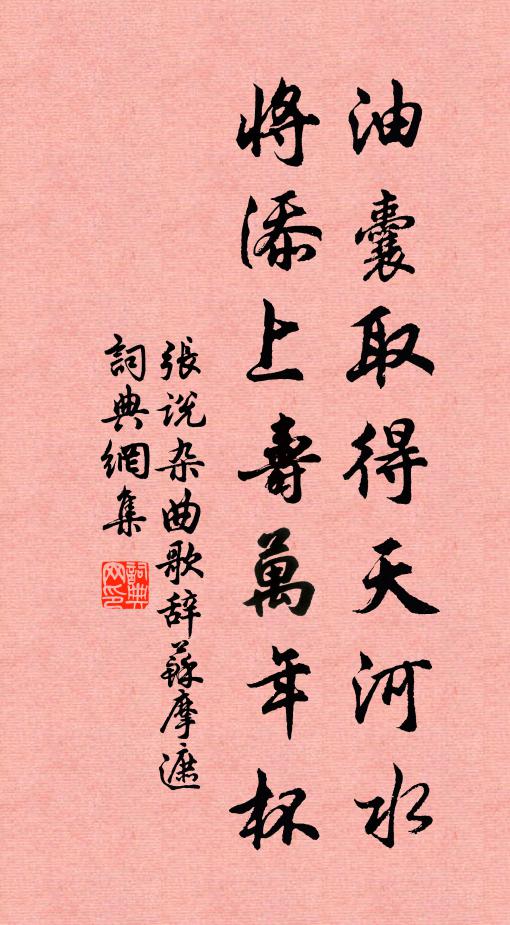 油囊取得天河水
將添上壽萬年杯
張说杂曲歌辞蘇摩遮
詞典網集
詞典
网印